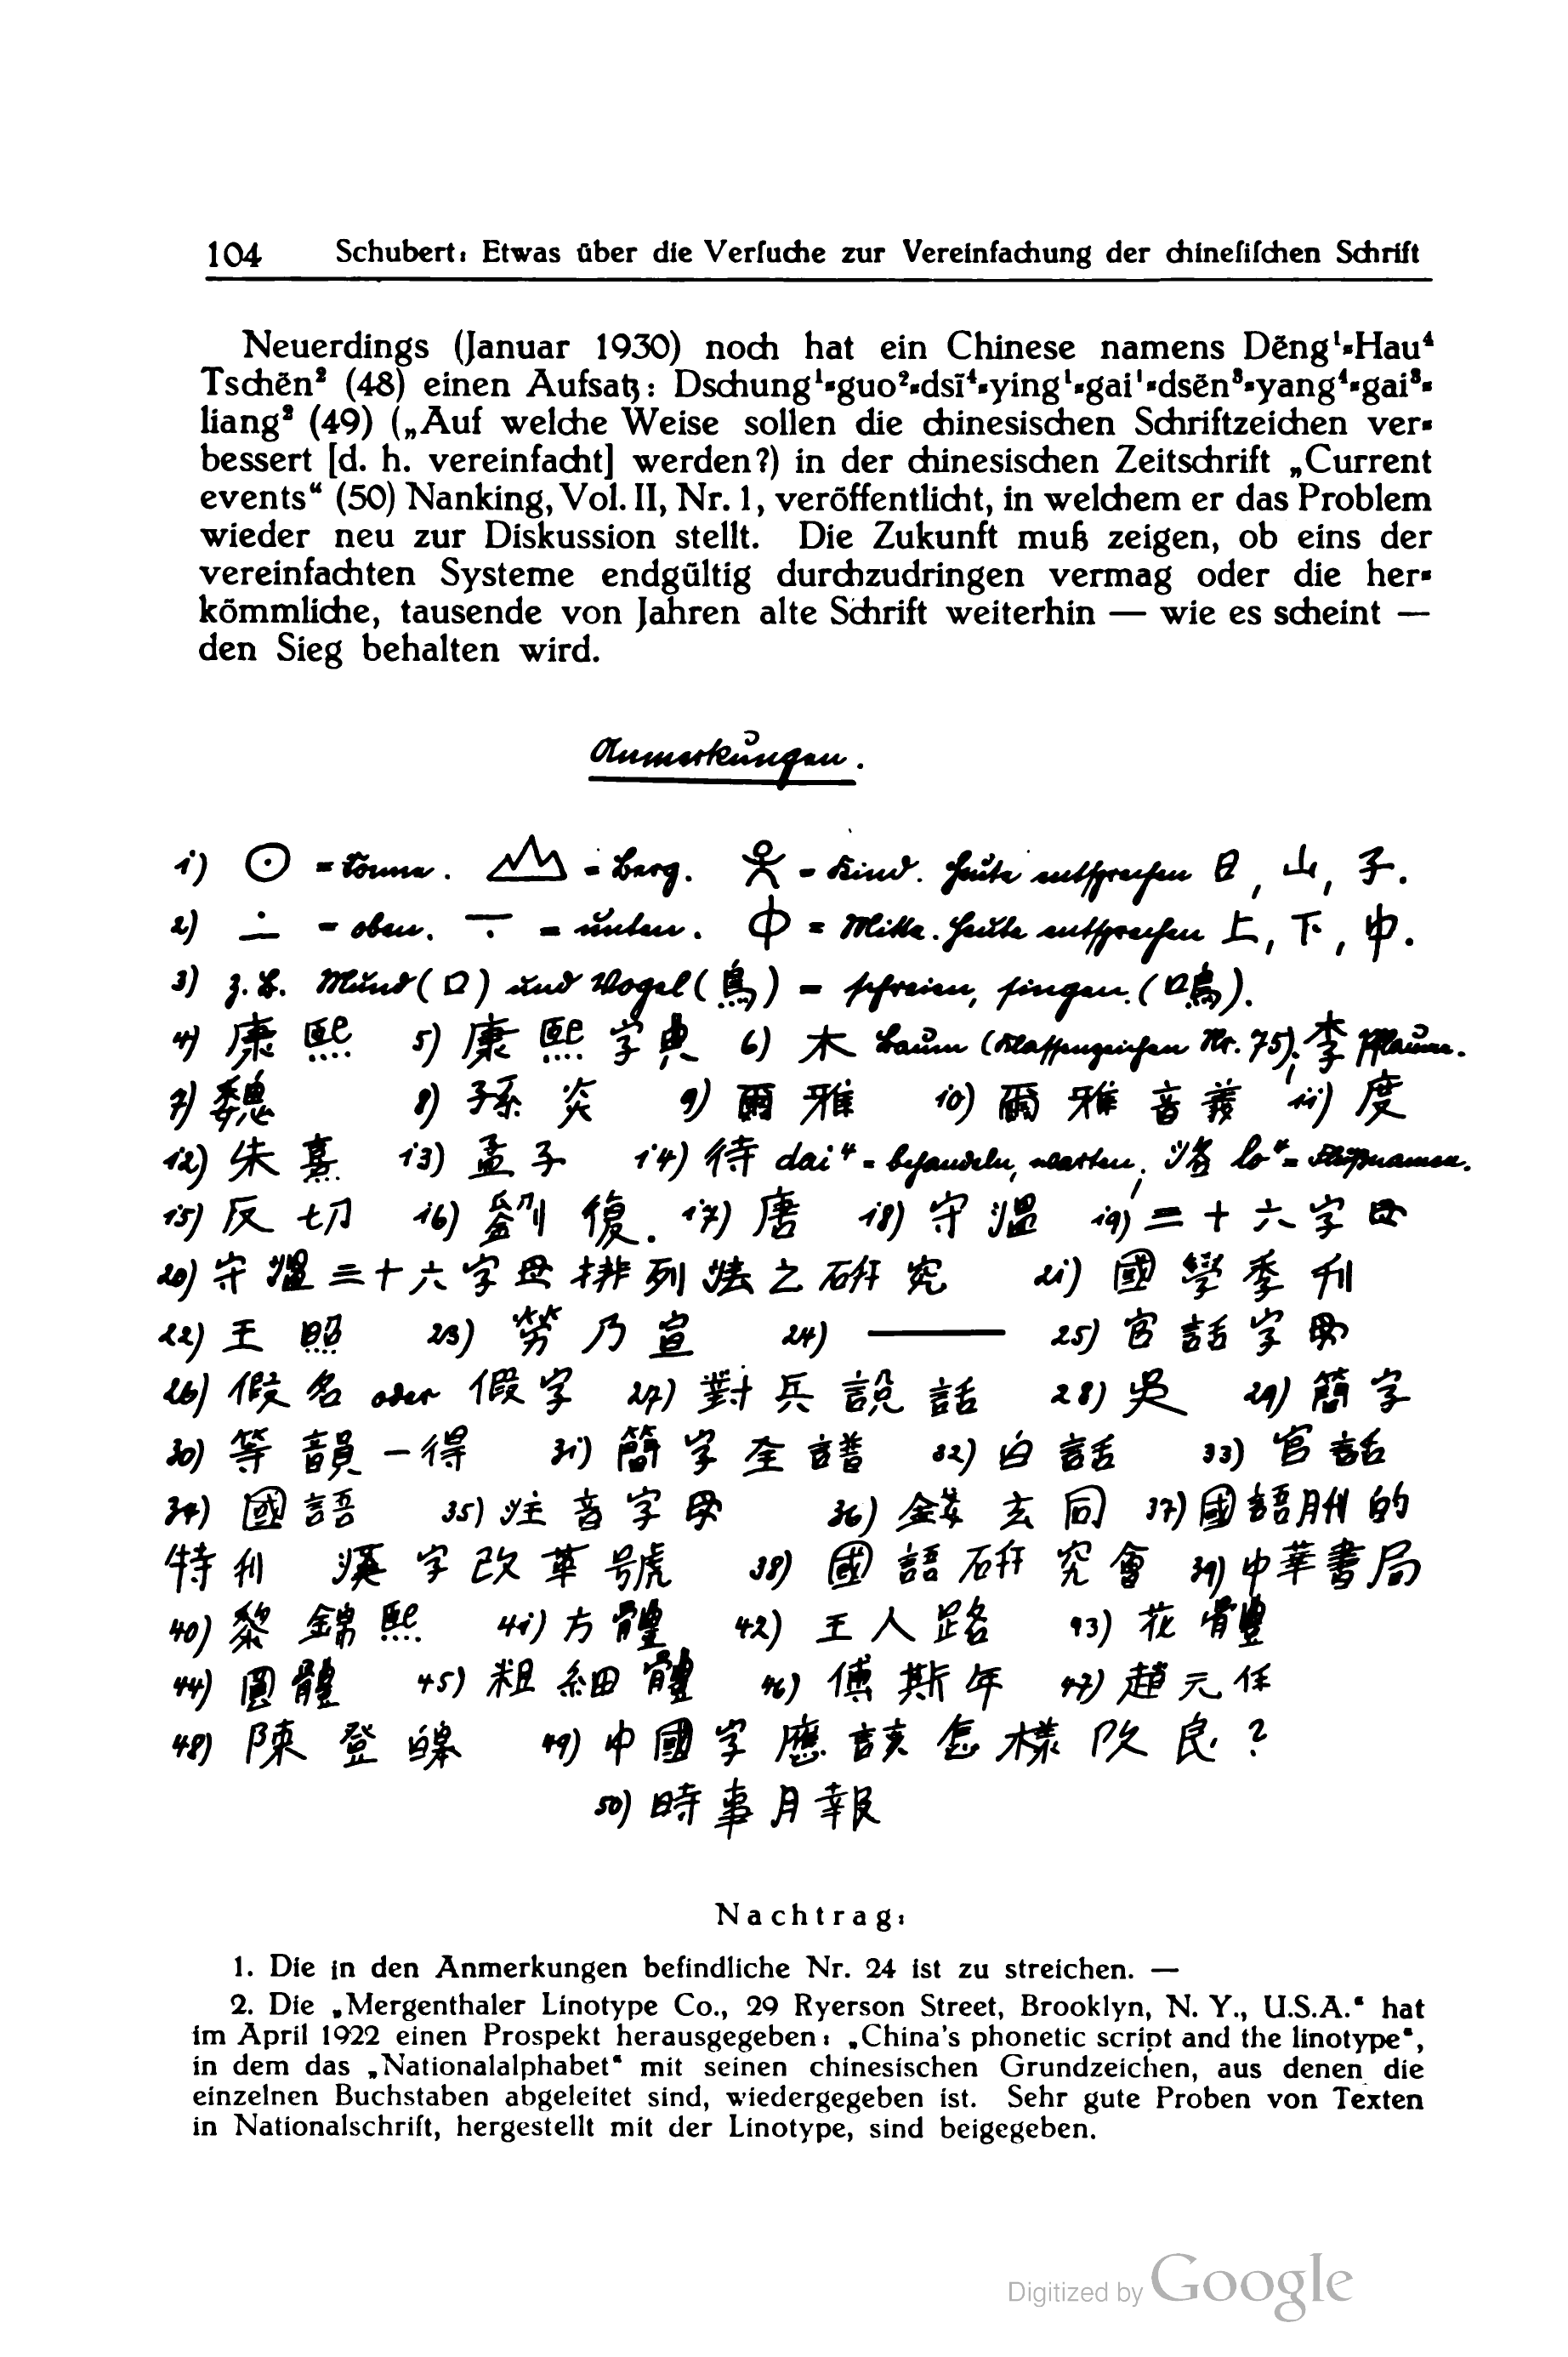 104 Schubert: Etwas über die Verſuche zur Vereinfachung der chineſiſchen Schrift
Neuerdings (Januar 1930) noch hat ein Chinese namens Dĕng¹-Hau⁴
Tschĕn² (48) einen Aufsatz: Dschung¹-guo²-dsï⁴-ying¹-gai¹-dsĕn³-yang⁴-gai³-
liang² (49) („Auf welche Weise sollen die chinesischen Schriftzeichen ver-
bessert [d. h. vereinfacht] werden?) in der chinesischen Zeitschrift „Current
events“ (50) Nanking, Vol. II, Nr. 1, veröffentlicht, in welchem er das Problem
wieder neu zur Diskussion stellt. Die Zukunft muß zeigen, ob eins der
vereinfachten Systeme endgültig durchzudringen vermag oder die her-
kömmliche, tausende von Jahren alte Schrift weiterhin — wie es scheint —
den Sieg behalten wird.
Anmerkungen.
1) ☉ = Sonne. = Berg. = Kind. Heute entsprechen 日, 山, 子.
2) = oben. = unten. = Mitte. Heute entsprechen 上, 下, 中.
3) z. B. Mund (口) und Vogel (鳥) = schreien, singen. (鳴).
4) 康熙 5) 康熙字典 6) 木 Baum (Klassenzeichen Nr. 75); 李 Pflaume.
7) 魏 8) 孫炎 9) 爾雅 10) 爾雅音義 11) 度
12) 朱熹 13) 孟子 14) 待 dai⁴ = behandeln, warten, 洛 lo⁴ = Flußnamen.
15) 反切 16) 劉復. 17) 唐 18) 守溫 19) 三十六字母
20) 守溫三十六字母排列法之研究 21) 國學季刊
22) 王照 23) 勞乃宣 24) ——— 25) 官話字母
26) 假名 oder 假字 27) 對兵說話 28) 吳 29) 簡字
30) 等韻一得 31) 簡字全譜 32) 白話 33) 官話
34) 國語 35) 注音字母 36) 錢玄同 37) 國語月刊的
特刊 漢字改革號 38) 國語研究會 39) 中華書局
40) 黎錦熙 41) 方體 42) 王人路 43) 花體
44) 圓體 45) 粗細體 46) 傅斯年 47) 趙元任
48) 陳登皞 49) 中國字應該怎樣改良?
50) 時事月報
Nachtrag:
1. Die in den Anmerkungen befindliche Nr. 24 ist zu streichen. —
2. Die „Mergenthaler Linotype Co., 29 Ryerson Street, Brooklyn, N. Y., U.S.A.“ hat
im April 1922 einen Prospekt herausgegeben: „China's phonetic script and the linotype“,
in dem das „Nationalalphabet“ mit seinen chinesischen Grundzeichen, aus denen die
einzelnen Buchstaben abgeleitet sind, wiedergegeben ist. Sehr gute Proben von Texten
in Nationalschrift, hergestellt mit der Linotype, sind beigegeben.
Digitized by Google